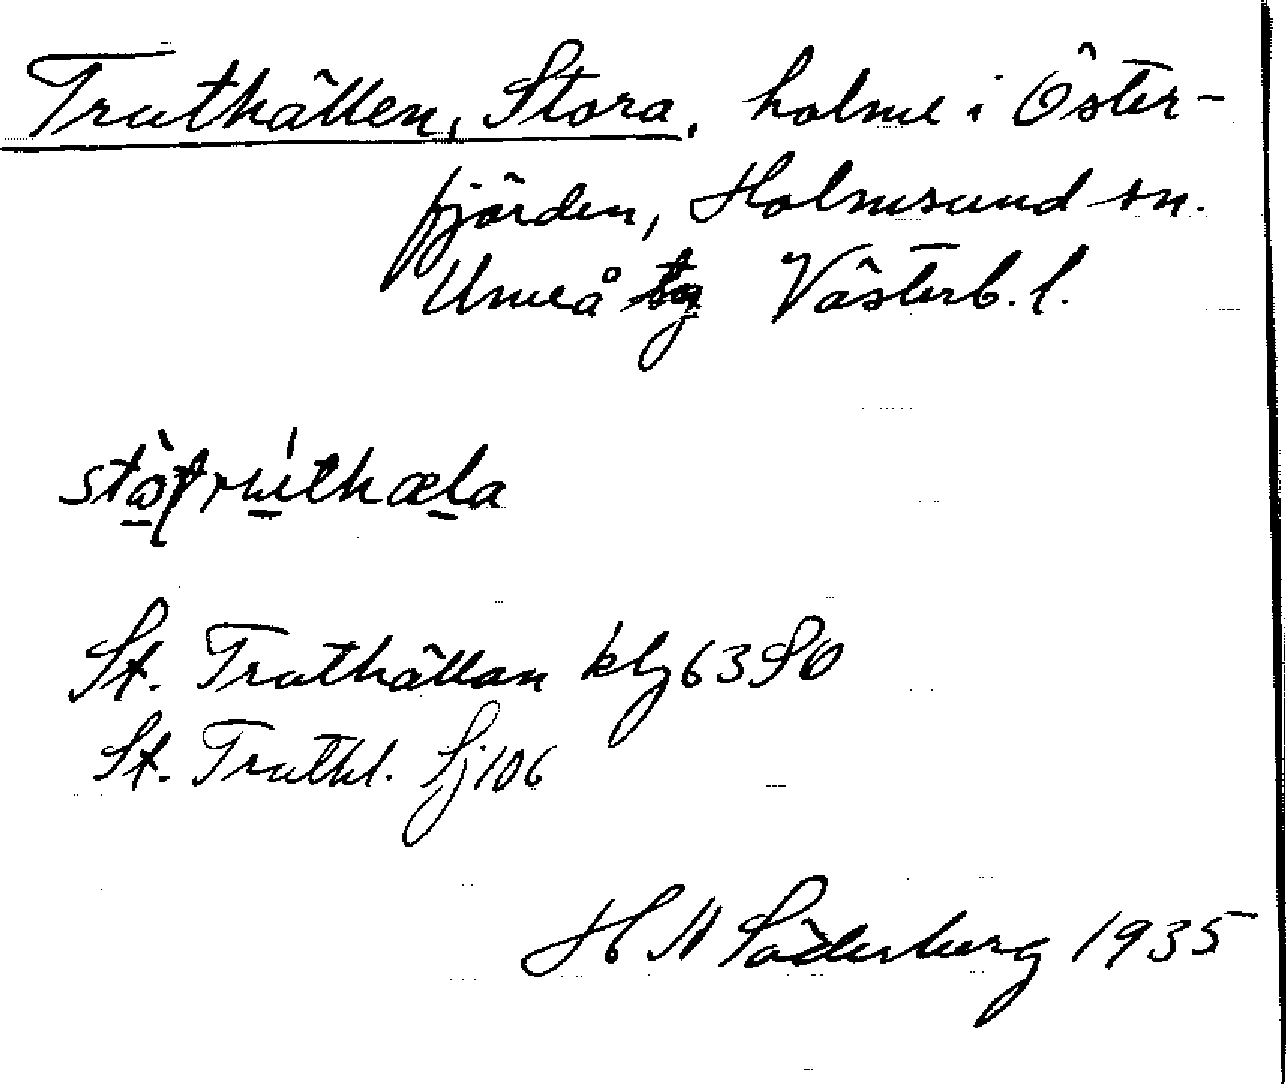 Truthällen, Stora, holme i Öster-
fjärden, Holmsund sn.
Umeå tg Västerb. l.
St. Truthällan klg 63 SO
St. Truthl. Sj 106
H Söderberg 1935